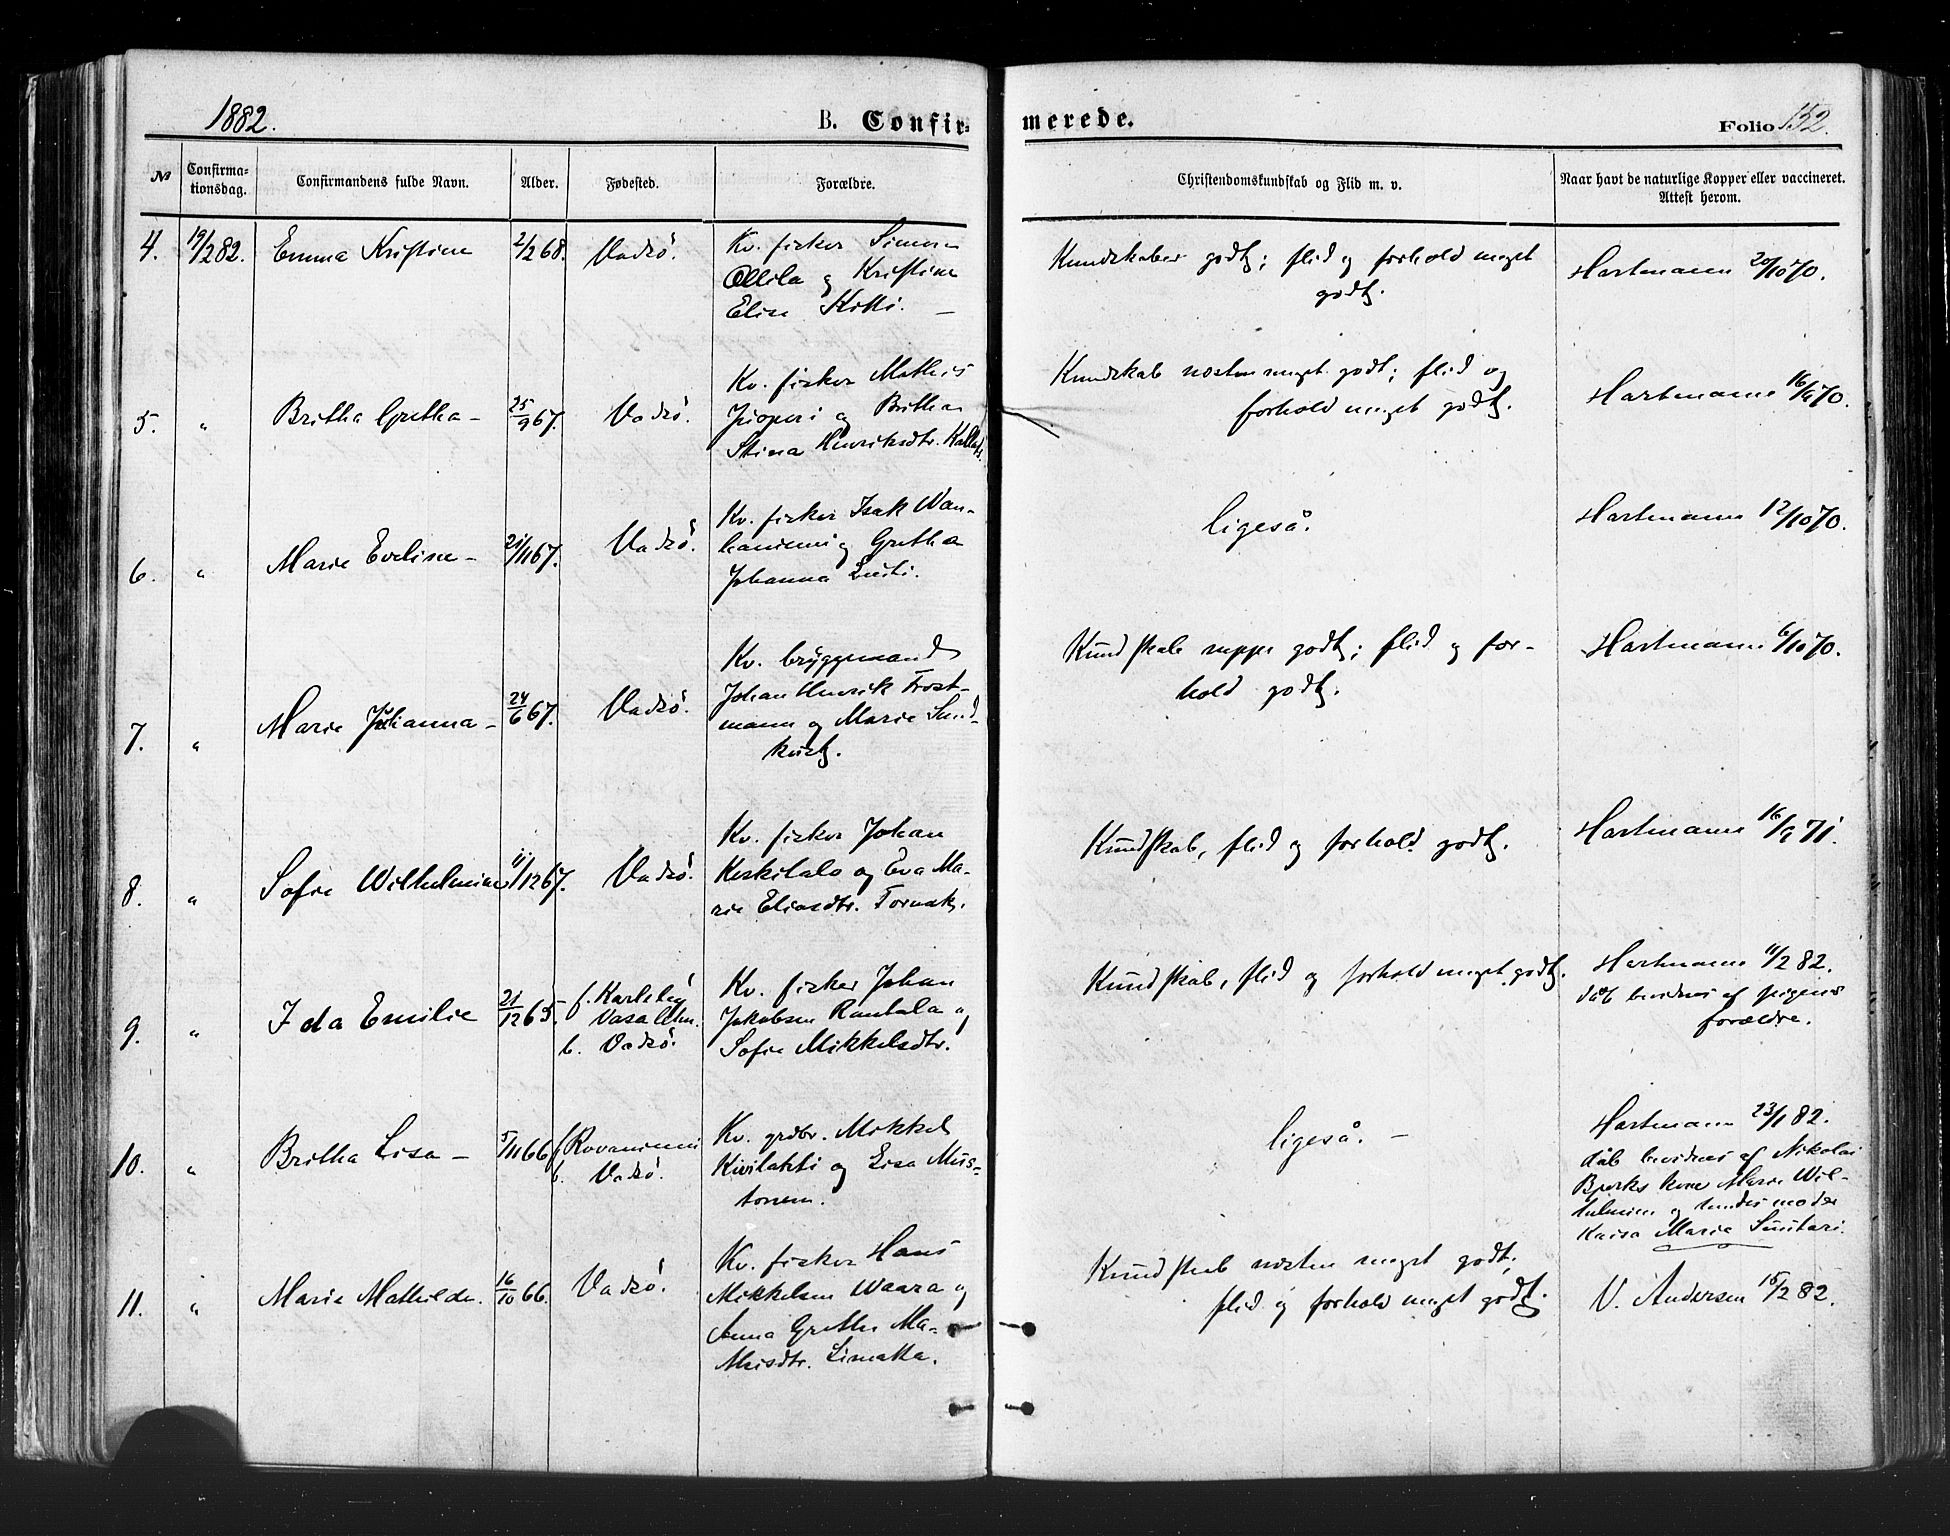 1882.
B. Confir-
merede.
Folio 152.
№
Confirma-
tionsdag.
Confirmandens fulde Navn.
Alder.
Fødested.
Forældre.
Christendomskundskab og Flid m. v.
Naar havt de naturlige Kopper eller vaccineret.
Attest herom.
4. 19/2 82. Emma Kristine 2/2 68. Vadsö.
Kv. fisker Simon
Ollila og Kristine
Elise Kitti. -
Kundskaber godt; flid og forhold meget
godt.
Hartmann 20/10 70.
5. " Britha Gretha - 25/9 67. Vadsö.
Kv. fisker Mathis
og Britha
Stina Henriksdtr.
Kundskab næsten meget godt; flid og
forhold meget godt.
Hartmann 16/9 70.
6. " Marie Eveline - 21/11 67. Vadsö.
Kv. fisker Isak Wan-
haniemi og Gretha
Johanna
ligeså.
Hartmann 12/10 70.
7. " Marie Johanna - 24/6 67. Vadsö.
Kv. bryggemand
Johan Henrik Frost-
mann og Marie Sund-
kvist.
Kundskab neppe godt; flid og for-
hold godt.
Hartmann 6/10 70.
8. " Sofie Wilhelmine 11/12 67. Vadsö.
Kv. fisker Johan
Keskitalo og Eva Ma-
rie Eliasdtr.
Kundskab, flid og forhold godt.
Hartmann 16/9 71.
9. " Ida Emilie 21/12 65.
f. Karleby
Vasa lehn.
b. Vadsö.
Kv. fisker Johan
Jakobsen Rantala og
Sofie Mikkelsdtr.
Kundskab, flid og forhold meget godt.
Hartmann 11/2 82.
dåb bevidnes af pigens
forældre.
10. " Britha Lisa - 5/11 66
f. Rovaniemi
b. Vadsö.
Kv. grdbr. Mikkel
Kivilahti og Lisa Mus-
tonen.
ligeså. -
Hartmann 23/1 82.
dåb bevidnes af Nikolai
Bjørks kone Marie Wil-
helmine og hendes moder
Kaisa Maria
11. " Marie Mathilde. 16/10 66. Vadsö.
Kv. fisker Hans
Mikkelsen Waara og
Anna Grethe Ma-
thisdtr. Limatta.
Kundskab næsten meget godt.
flid og forhold meget godt.
V. Andersen 15/2 82.